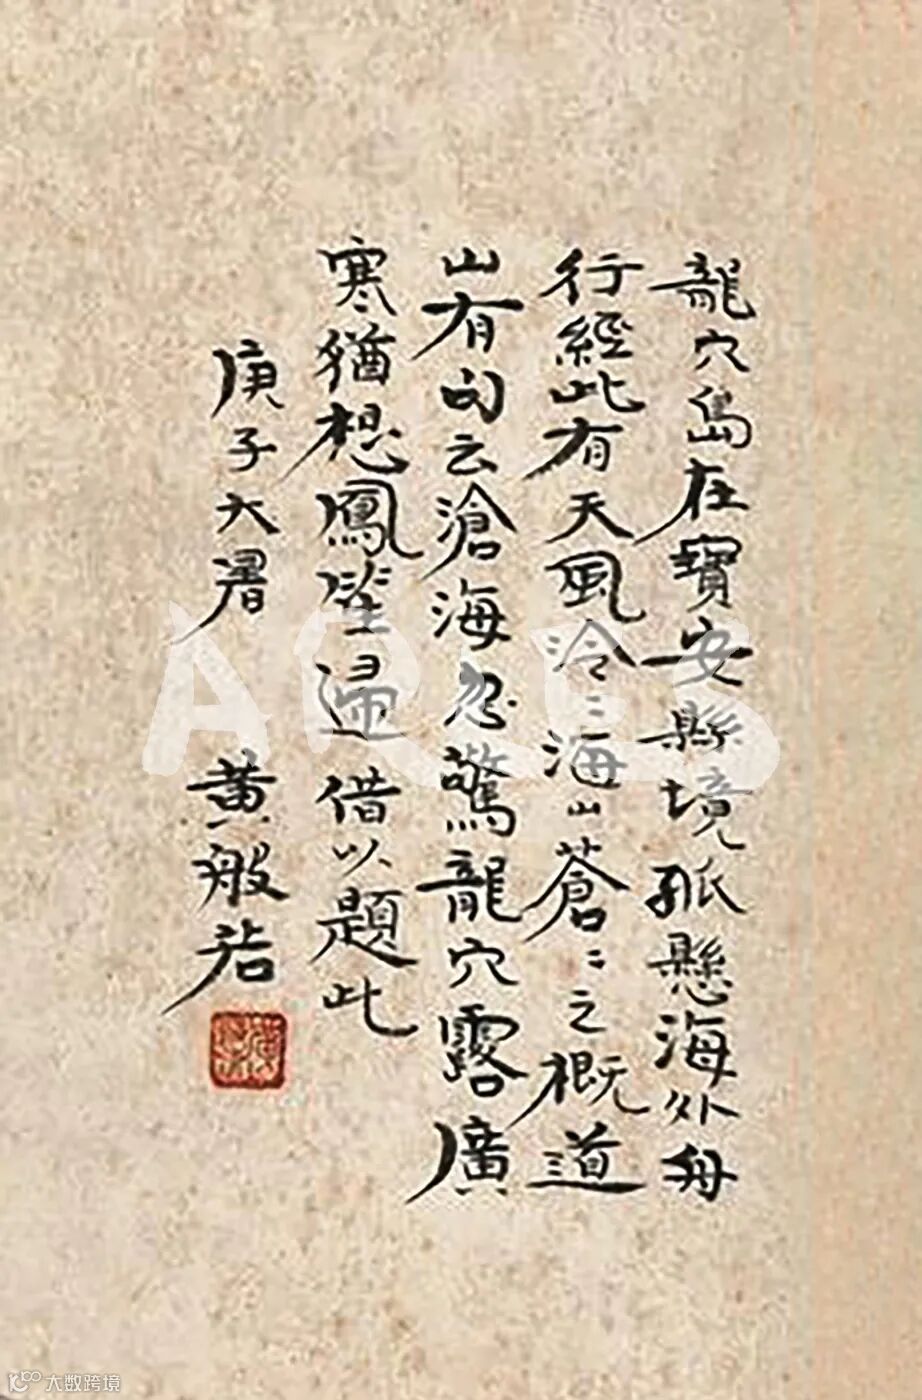 龍穴島在寶安縣境孤懸海外舟
行經此有天風泠〻海山蒼〻之概道
山有句云滄海忽驚龍穴露廣
寒猶想鳳笙歸借以題此
庚子大暑 黃般若
ARTES
大数跨境